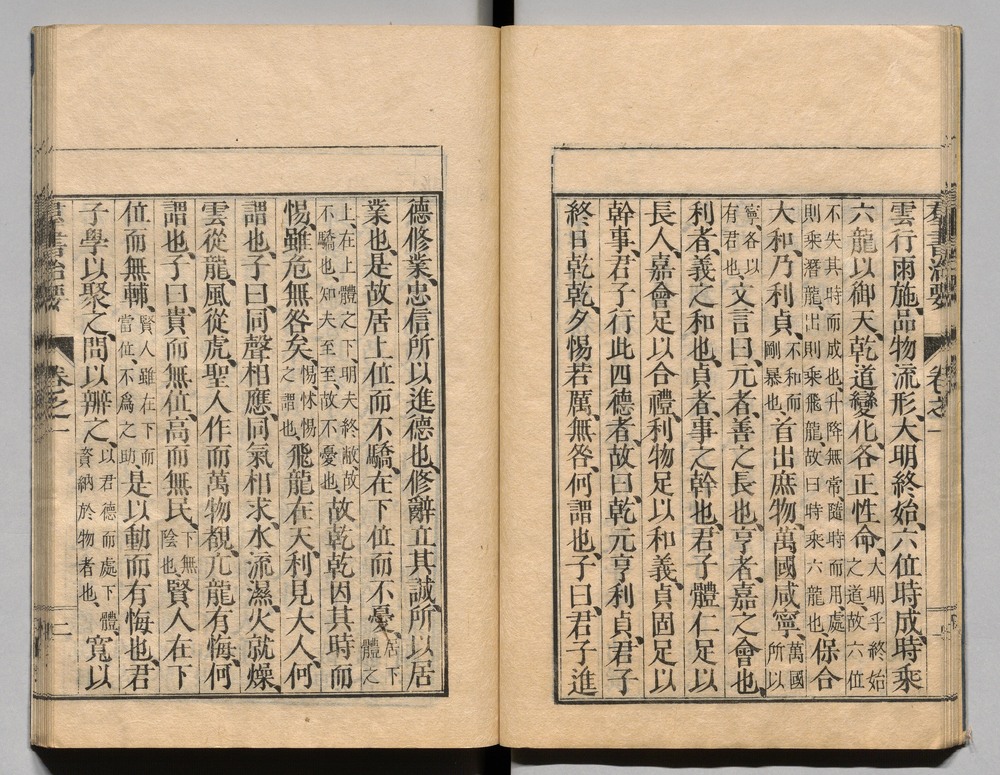 雲行雨施、品物流形、大明終始、六位時成、時乘
六龍以御天、乾道變化、各正性命、大明乎終始之道、故六位
不失其時而成也、升降無常、隨時而用、處則乘潛龍、出則乘飛龍、故曰時乘六龍也、保合
大和、乃利貞、不和而剛暴也、首出庶物、萬國咸寧、萬國所以
寧、各以有君也、文言曰、元者、善之長也、亨者、嘉之會也、
利者、義之和也、貞者、事之幹也、君子體仁足以
長人、嘉會足以合禮、利物足以和義、貞固足以
幹事、君子行此四德者、故曰、乾元亨利貞、君子
終日乾乾、夕惕若厲、無咎、何謂也、子曰、君子進
德修業、忠信所以進德也、修辭立其誠、所以居
業也、是故居上位而不驕、在下位而不憂、居下體之
上、在上體之下、明夫終敝、故不驕也、知夫至至、故不憂也、故乾乾因其時而
惕、雖危無咎矣、惕、怵惕之謂也、飛龍在天、利見大人、何
謂也、子曰、同聲相應、同氣相求、水流濕、火就燥、
雲從龍、風從虎、聖人作而萬物覩、亢龍有悔、何
謂也、子曰、貴而無位、高而無民、下無陰也、賢人在下
位而無輔、賢人雖在下而當位、不爲之助、是以動而有悔也、君
子學以聚之、問以辨之、以君德而處下體、資納於物者也、寬以
群書治要 卷之一
群書治要 卷之一 二